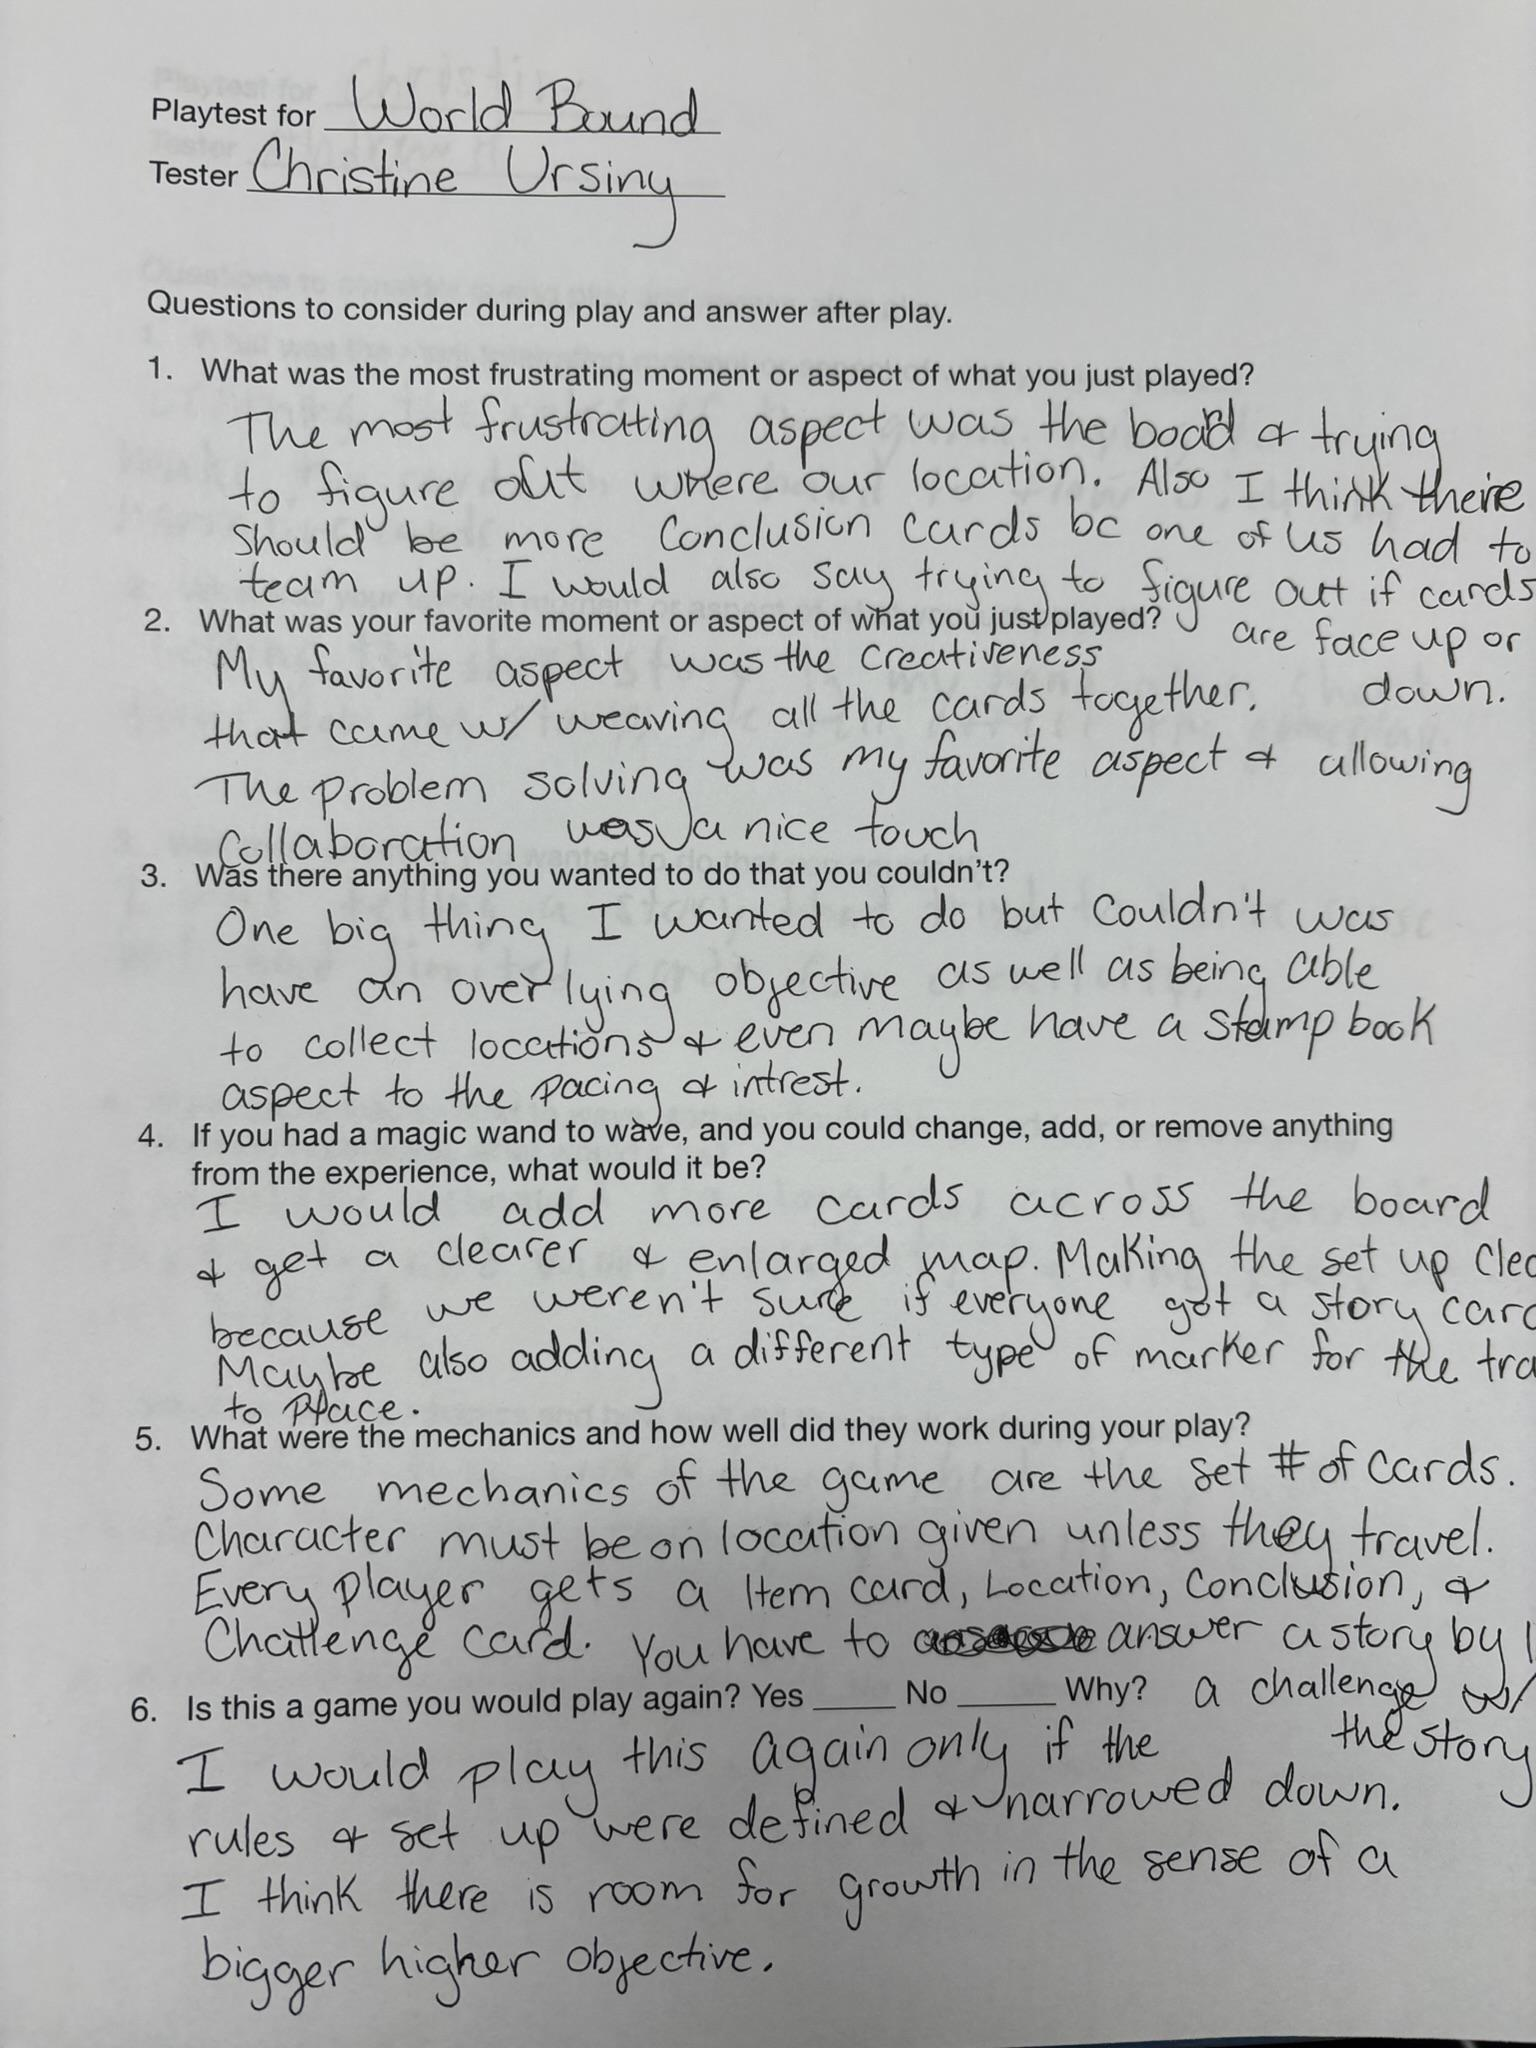 Playtest for World Bound
Tester Christine Ursiny
Questions to consider during play and answer after play.
1. What was the most frustrating moment or aspect of what you just played?
The most frustrating aspect was the board & trying
to figure out where our location. Also I think there
should be more conclusion cards bc one of us had to
team up. I would also say trying to figure out if cards
are face up or
down.
2. What was your favorite moment or aspect of what you just played?
My favorite aspect was the creativeness
that came w/ weaving all the cards together.
The problem solving was my favorite aspect & allowing
collaboration was a nice touch
3. Was there anything you wanted to do that you couldn't?
One big thing I wanted to do but couldn't was
have an overlying objective as well as being able
to collect locations & even maybe have a stamp book
aspect to the pacing & intrest.
4. If you had a magic wand to wave, and you could change, add, or remove anything
from the experience, what would it be?
I would add more cards across the board
& get a clearer & enlarged map. Making the set up
because we weren't sure if everyone got a story
Maybe also adding a different type of marker for the
to place.
5. What were the mechanics and how well did they work during your play?
Some mechanics of the game are the set # of cards.
Character must be on location given unless they travel.
Every player gets a Item card, Location, Conclusion, &
Challenge card. You have to answer a story by
a challenge w/
the story
6. Is this a game you would play again? Yes _____ No ______ Why?
I would play this again only if the
rules & set up were defined & narrowed down.
I think there is room for growth in the sense of a
bigger higher objective.